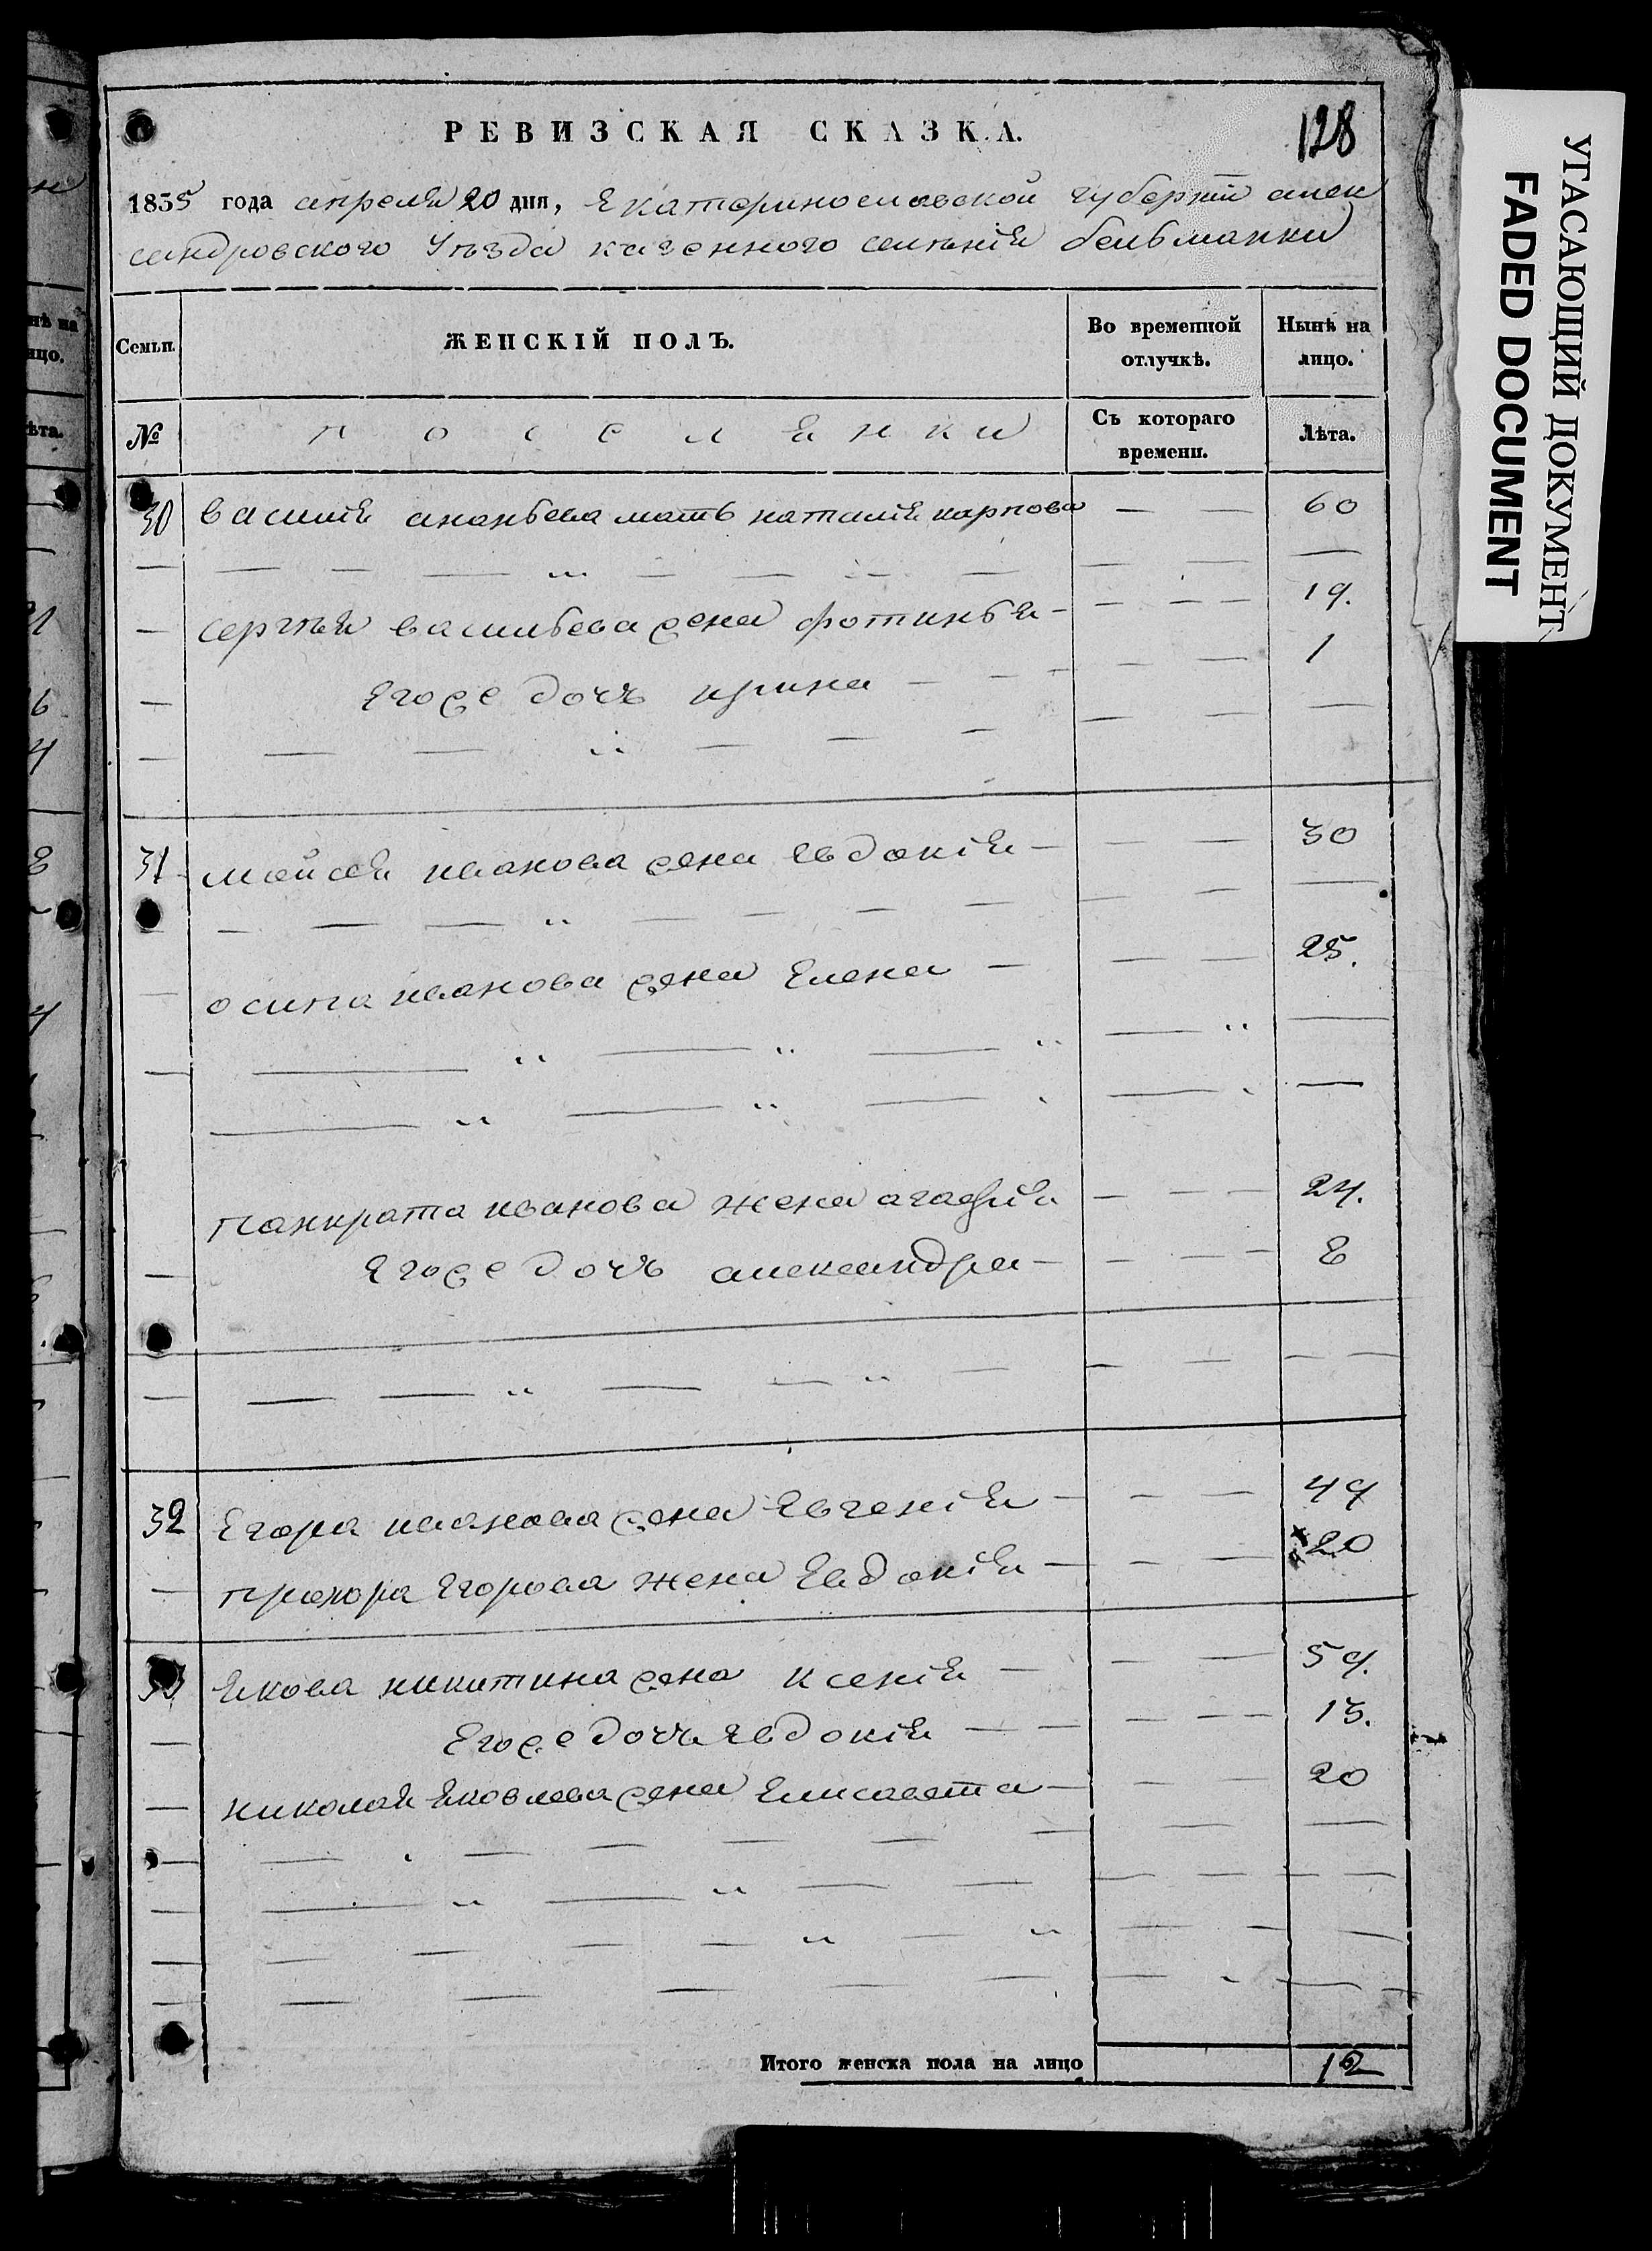 РЕВИЗСКАЯ СКАЗКА.
128
1835 года апреля 20 дня, Екатеринославской губернїи алек
сандровского Уѣзда казенного селѣнїя бельманки
Семьи.
ЖЕНСКІЙ ПОЛЪ.
Во временной отлучкѣ.
Нынѣ на лицо.
№
поселянки
Съ котораго времени.
Лѣта.
30 василїя ананьева мать наталїя карпова — — 60
сергѣя васильева жена фотинья — — — — 19.
Егоже дочь ирина — — — — 1
31 мойсея иванова жена Евдокїя — — — 30
осипа иванова жена Елена — — — 25.
панкрата иванова жена агафїя — — — 24.
Егоже дочь александра — — — — 8
32 Егора иванова жена Евгенїя — — — 49
прохора Егорова жена Евдокїя — — — 20
33 Якова никитина жена ксенїя — — — 59.
Егоже дочь Евдокїя — — — — — 13.
николая Яковлева жена Елисавета — — — 20
Итого женска пола на лицо 12
УГАСАЮЩИЙ ДОКУМЕНТ
FADED DOCUMENT